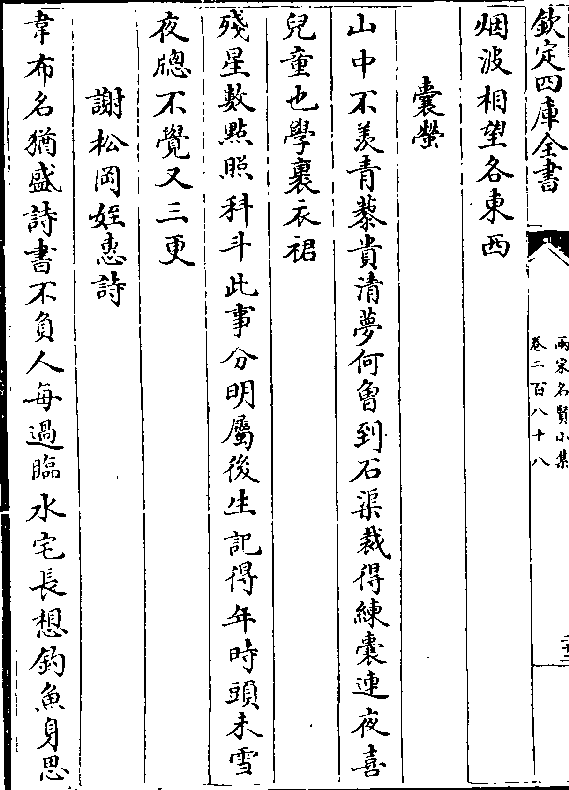 欽定四庫全書
兩宋名賢小集
卷二百八十八
烟波相望各東西
囊螢
山中不羨青藜貴清夢何曾到石渠裁得練囊連夜喜
兒童也學裹衣裾
殘星數點照科斗此事分明屬後生記得年時頭未雪
夜牕不覺又三更
謝松岡姪惠詩
韋布名猶盛詩書不負人每過臨水宅長想釣魚身思